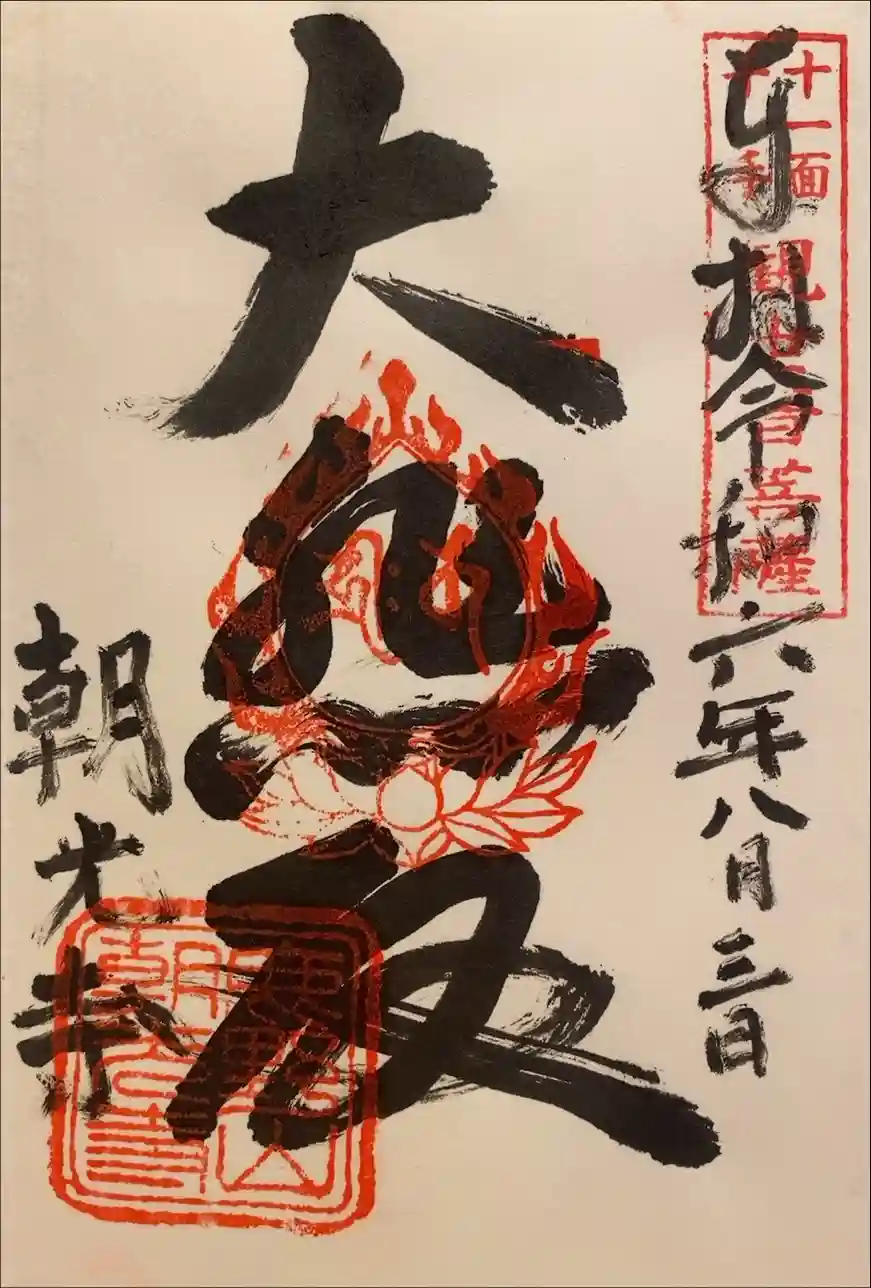 奉拝
令和六年八月三日
十一面
千手
観世音菩薩
大悲殿
朝光寺